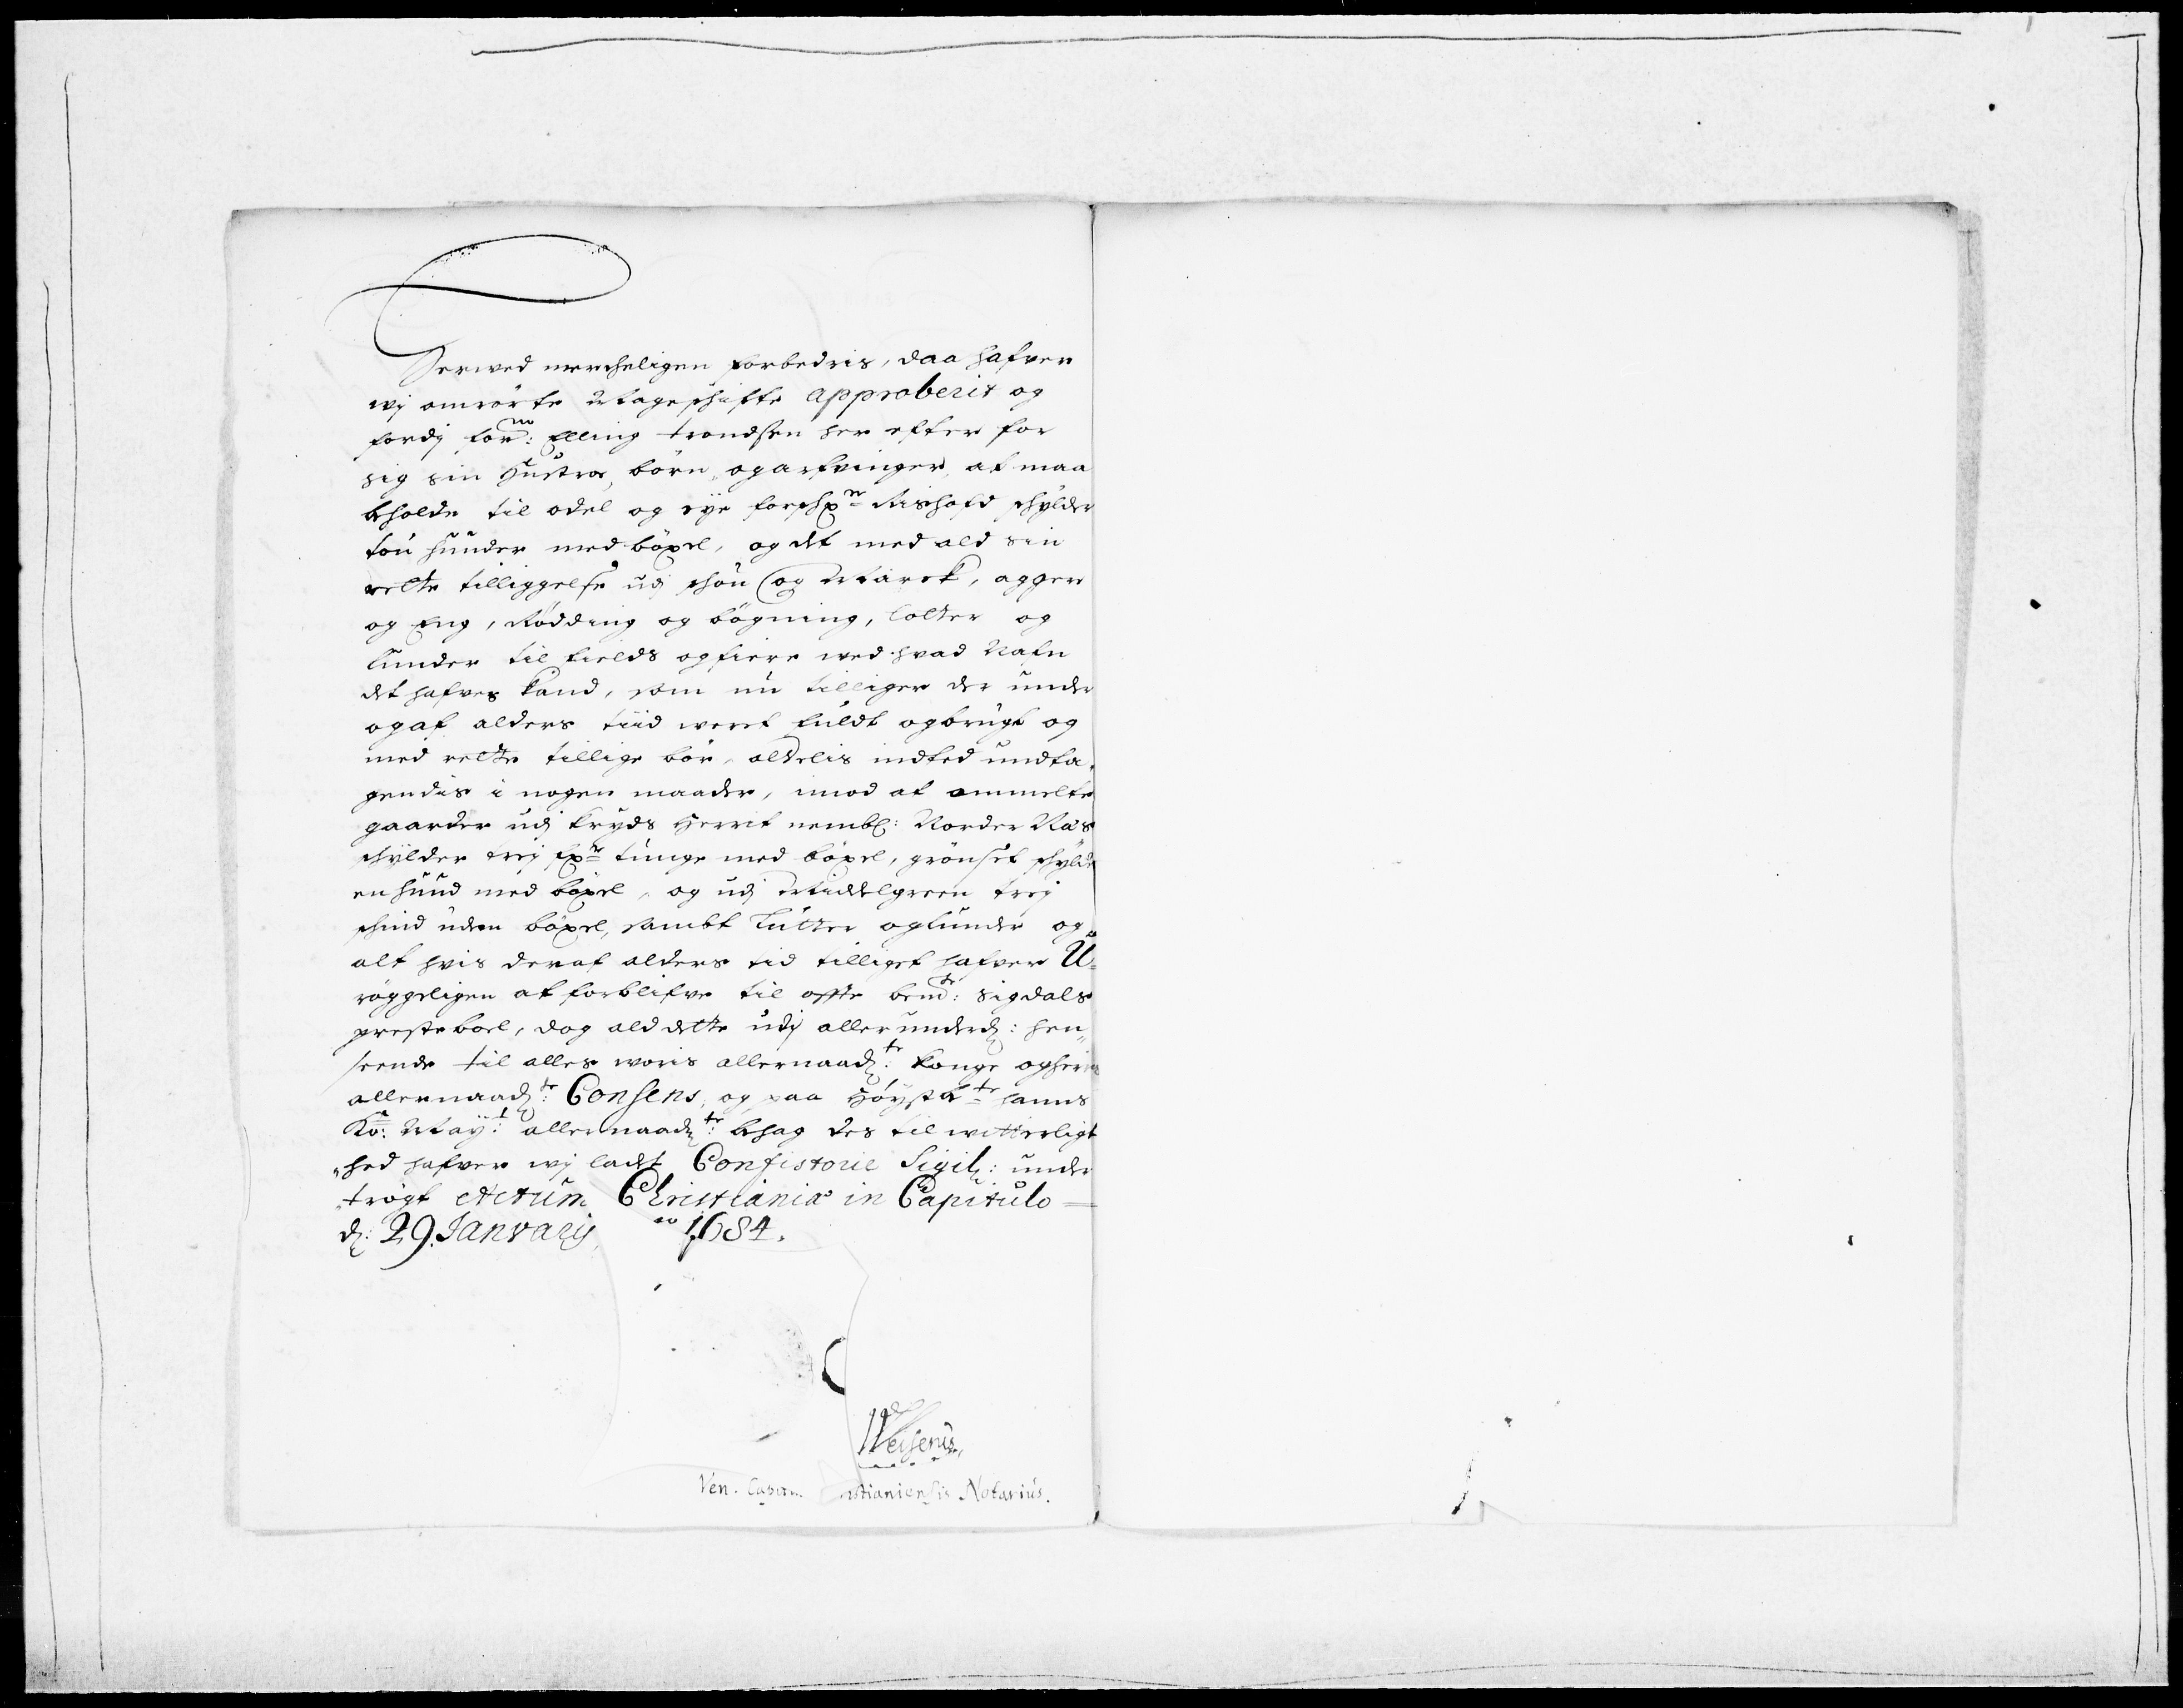 Herved mercheligen forbedris, daa hafver
wj omrørte Mageschifte approberit og
fordj forne: Elling trondsen her efter for
sig sin Hustroe, børn, og arfvinger, at maa
beholde til odel og eye forschrne Rishofd schylder
tou huuder med bøxel, og det med ald sin
rette tilliggelse udj schou og Marck, agger
og Eng, Rødding og bøgning, lotter og
lunder til fields og fiere ved hvad Nafn
det hafves kand, som nu tilliger der under
og af alders tiid veret fuldt og brugt og
med rette tillige bør, aldelis indted undta¬
gendis i nogen maader, imod at ommelte
gaarder udj Kryds Herrit nembl: Norder Raas
schylder trej tunge med bøxel, grønset schylder
en huud med bøxel, og udj Middelgreen trej
schind uden bøxel, sambt lutter og lunder og
alt hvis der af alders tid tilliget hafver U¬
røggeligen at forblifve til offte bemte: Sigdals
presteboel, dog ald dette udj allerunderd: hen¬
seende til alles woris allernaadte: Konge og herris
allernaadte: Consens, og paa Høystbte hanns
Ko: Mayt: allernaadte: behag des til witterligt
hed hafver wj ladet Consistorie Sigil: under
trøgt Actum Christianiæ in Capitulo
d: 29. Janvarij Ao 1684.
Weiserus
Ven. Capit. stianiensis Notarius.